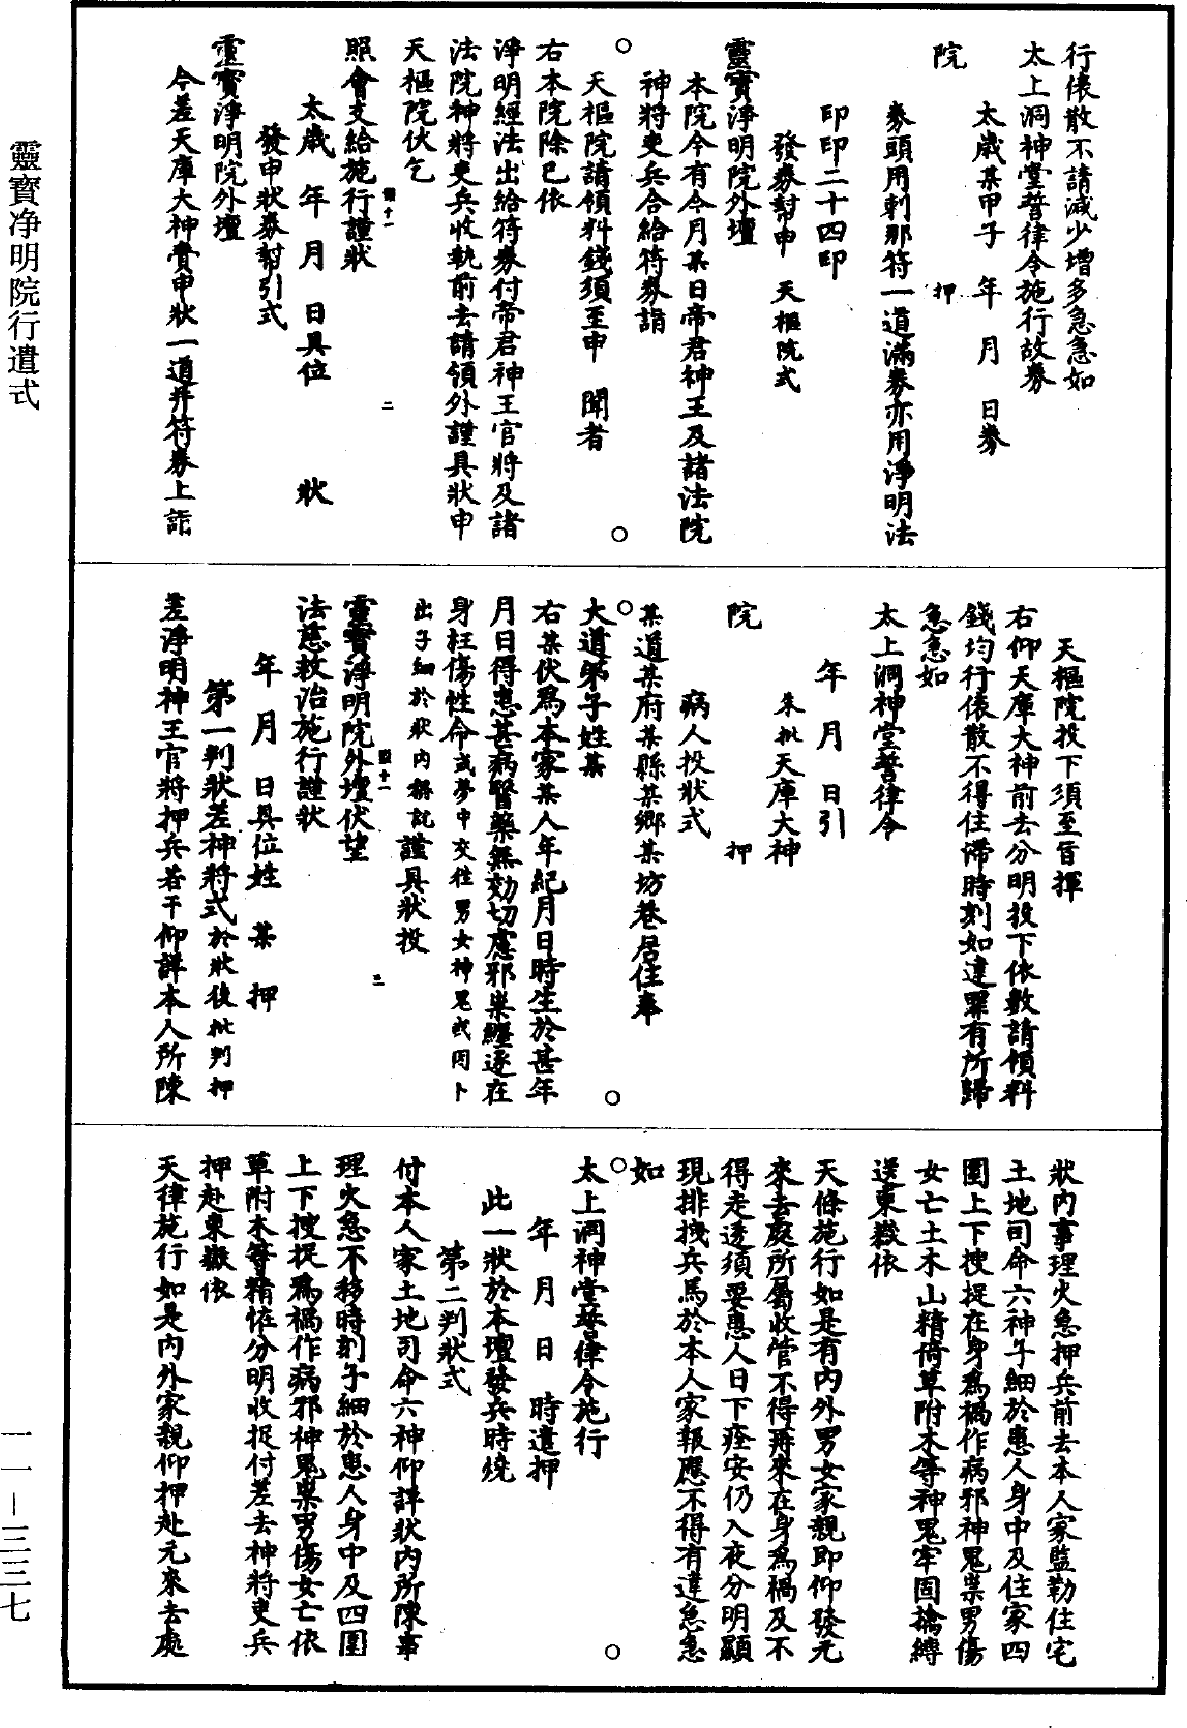 行俵散不請減少增多急急如
太上洞神堂誓律令施行故券
太歲某甲子　年　月　日券
院　　押
券頭用刺那符一道滿券亦用淨明法
印印二十四印
發券對申　天樞院式
靈寶淨明院外壇
本院今有今月某日帝君神王及諸法院
神將吏兵合給符券詣
天樞院請領料錢須至申　聞者
右本院除已依
淨明經法出給符券付帝君神王官將及諸
法院神將吏兵收執前去請領外謹具狀申
天樞院伏乞
照會支給施行謹狀
太歲　年　月　日具位　　狀
發申狀券對引式
靈寶淨明院外壇
今差天庫大神賫申狀一道并符券上詣
天樞院投下須至旨揮
右仰天庫大神前去分明投下依數請領料
錢均行俵散不得住滯時刻如違罪有所歸
急急如
太上洞神堂誓律令
年　月　日引
朱批天庫大神
院　　押
病人投狀式
某道某府某縣某鄉某坊巷居住奉
大道弟子姓某
右某伏為本家某人年紀月日時生於甚年
月日得患甚病醫藥無効切慮邪祟纏逐在
身枉傷性命或夢中交往男女神鬼或因卜
出子細於狀內稱說謹具狀投
靈寶淨明院外壇伏望
法慈救治施行謹狀
年　月　日具位姓　某　押
第一判狀差神將式於狀後批判押
差淨明神王官將押兵若干仰詳本人所陳
狀內事理火急押兵前去本人家監勒住宅
土地司命六神子細於患人身中及住家四
圍上下搜捉在身為禍作病邪神鬼祟男傷
女亡土木山精倚草附木等神鬼牢固擒縛
送東嶽依
天條施行如是有內外男女家親即仰發元
來去處所屬收管不得再來在身為禍及不
得走透須要患人日下痊安仍入夜分明顯
現排拽兵馬於本人家報應不得有違急急
如
太上洞神堂誓律令施行
年　月　日　時遣押
此一狀於本壇發兵時燒
第二判狀式
付本人家土地司命六神仰詳狀內所陳事
理火急不移時刻子細於患人身中及四圍
上下搜捉為禍作病邪神鬼祟男傷女亡依
草附木等精恠分明收捉付差去神將吏兵
押赴東嶽依
天律施行如是內外家親仰押赴元來去處
靈寶净明院行遣式
一一－三三七